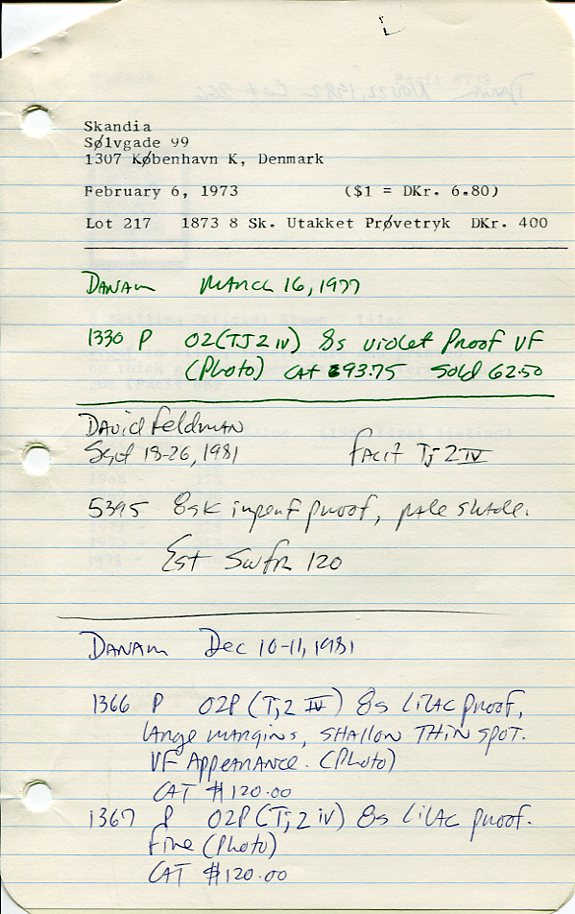 Skandia
Sølvgade 99
1307 København K, Denmark
February 6, 1973 ($1 = DKr. 6.80)
Lot 217 1873 8 Sk. Utakket Prøvetryk DKr. 400
DANAM MARCH 16, 1977
1330 P O2(TJ2 IV) 8s violet Proof VF
(Photo) CAT $93.75 Sold 62.50
David Feldman
Sept 18-26, 1981 Facit Tj 2 IV
5395 8sk imperf proof, pale shade.
Est Swfr 120
DANAM Dec 10-11, 1981
1366 P O2P (Tj2 IV) 8s lilac proof,
large margins, SHALLOW THIN SPOT.
VF Appearance. (Photo)
CAT $120.00
1367 P O2P (Tj2 iv) 8s lilac proof.
Fine (Photo)
CAT $120.00